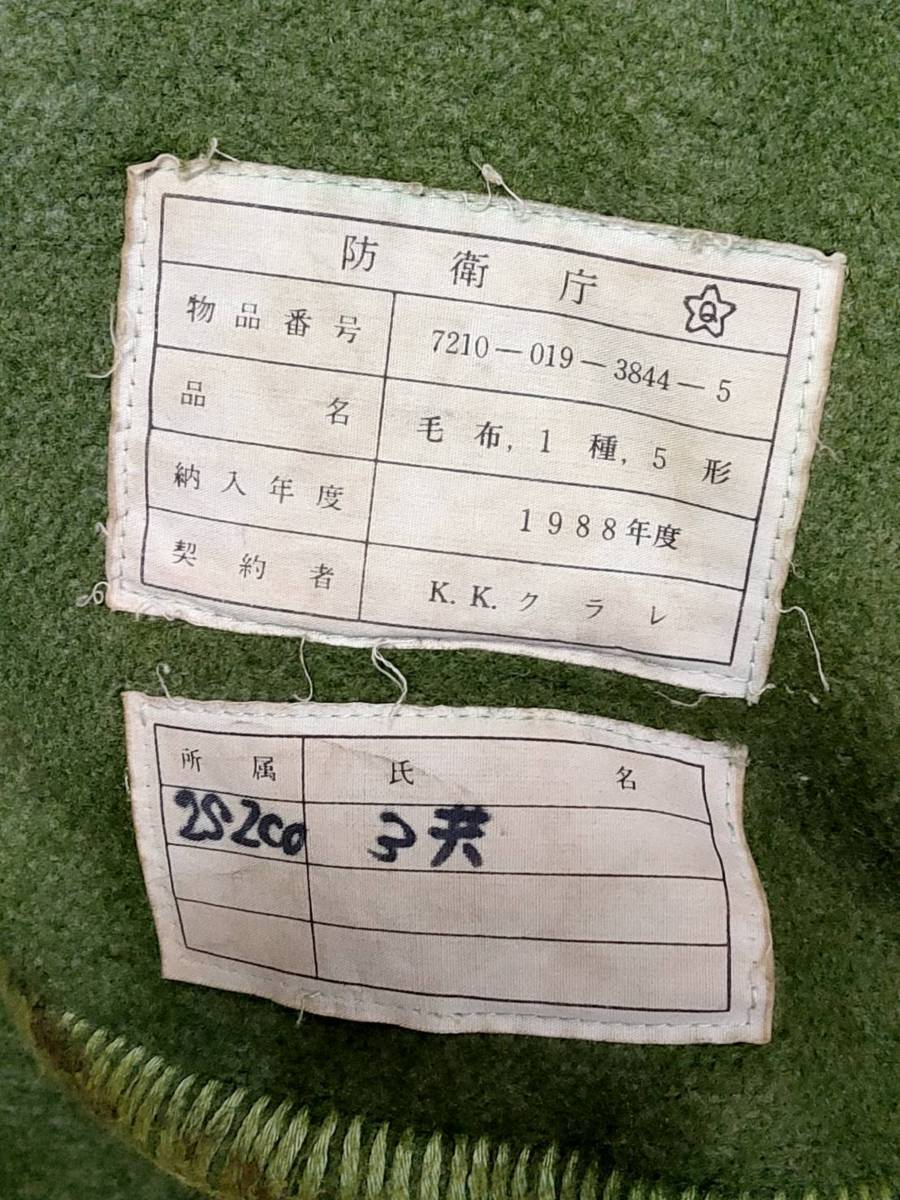 防衛庁 Q
物品番号 7210-019-3844-5
品名 毛布,1種,5形
納入年度 1988年度
契約者 K.K.クラレ
所属 氏名
2S2co 3共